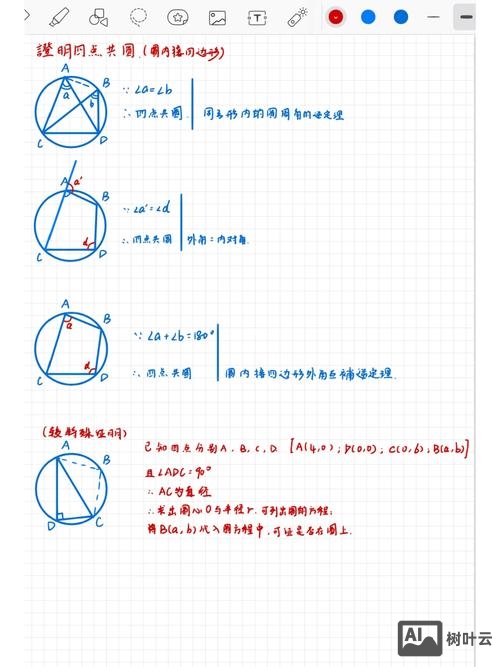 證明四点共圆.(圆内接四边形)
A
B
a
b
C
D
∵ ∠a=∠b
∴ 四点共圆.
同弓形内的圆周角的逆定理
A
a'
B
d
C
D
∵ ∠a'=∠d
∴ 四点共圆
外角=内对角.
A
B
a
d
C
D
∵ ∠a+∠b=180°
∴ 四点共圆
圆内接四边形外角互補逆定理.
(较特殊证明)
A
B
D
C
已知四点分别A、B、C、D. [A(4,0);D(0,0);C(0,6);B(a,b)]
且∠ADC=90°
∴ AC为直径
∴求出圆心O与半径r.可列出圆的方程;
将B(a,b)代入圆方程中,可证是否在圆上.
AI 树叶云